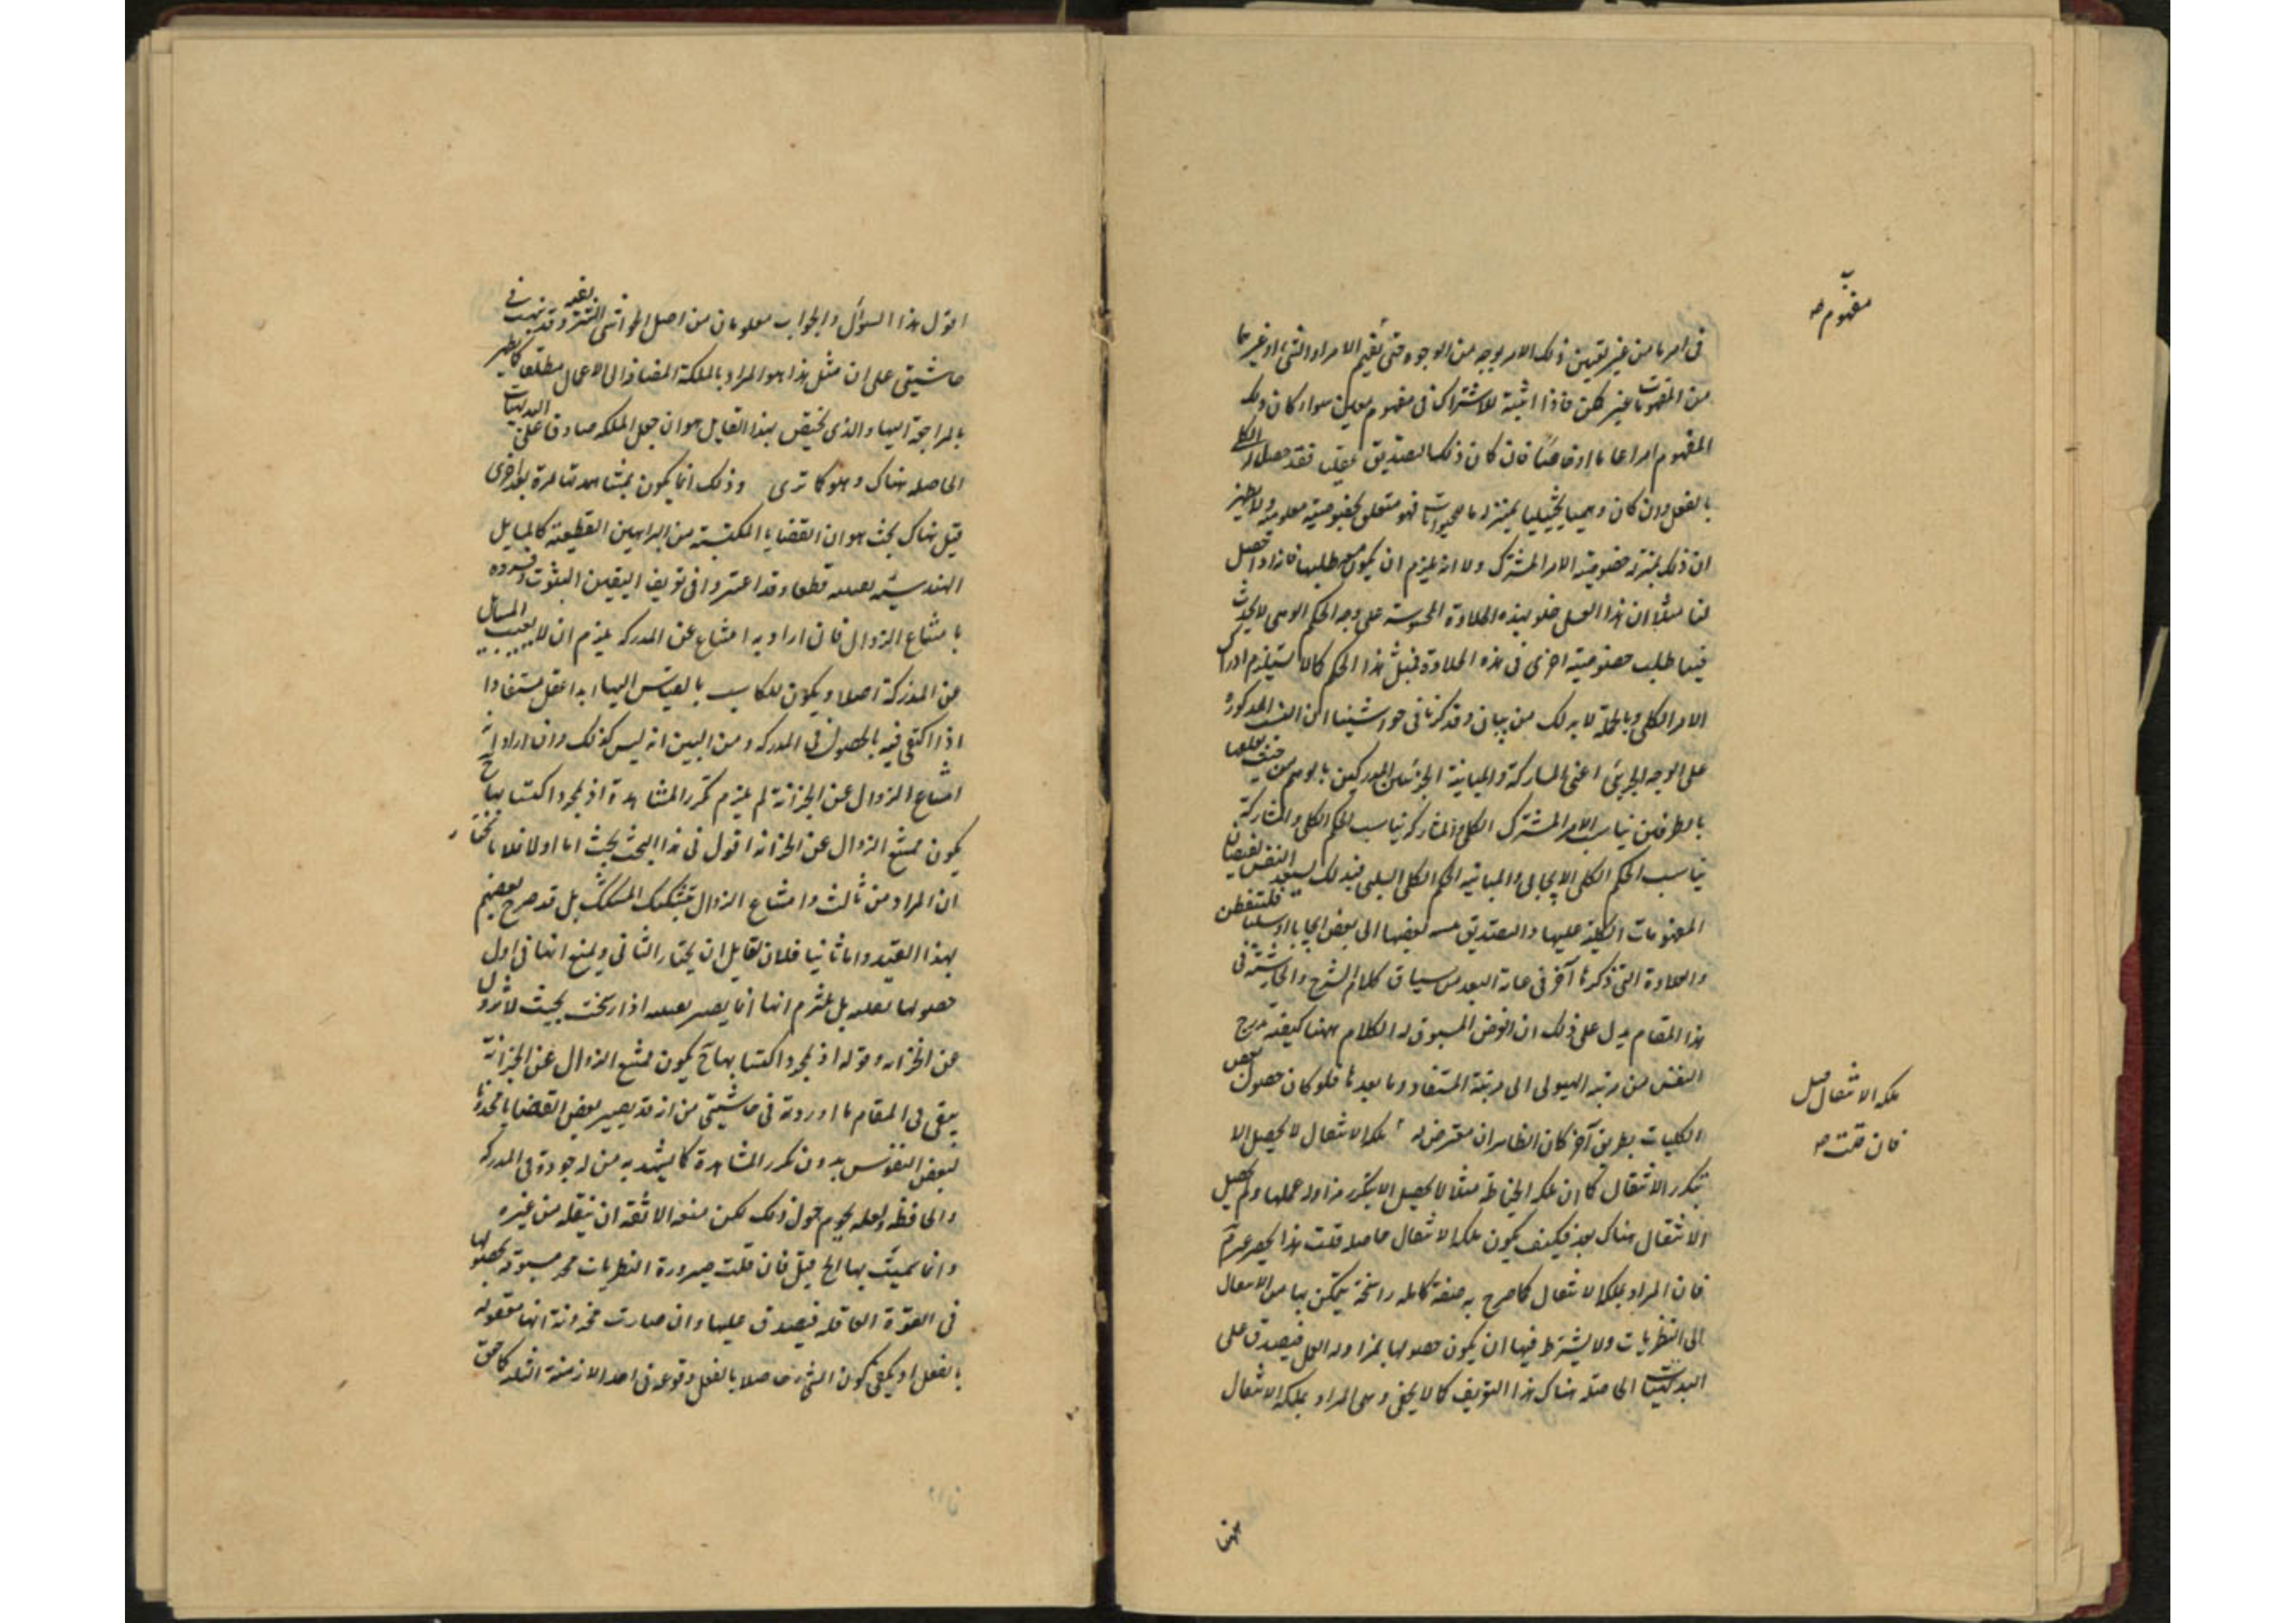 مفهوم صح
فى امر ما من غير تعيين ذلك الامر بوجه من الوجوه حتى يقيم الامر او الشئ او غيرهما
من المفهومات غير ممكن فاذا اثبته للاشتراك فى مفهوم معين سواء كان ذلك
المفهوم امرا عاما او خاصا فان كان ذلك التصديق عقليا فقد حصل الكلى
بالفعل وان كان وهميا تخييليا بمنزلة ما للحيوانات فهو متعلق بخصوصية معلومة ولا يظهر
ان ذلك بمنزلة خصوصية الامر المشترك ولا انه يلزم ان يكون مع طلبها فانه اذا حصل
لنا مثلا ان هذا العسل حلو بهذه الحلاوة المحسوسة على وجه الحكم الوهمى لا يحدث
فينا طلب خصوصية اخرى فى هذه الحلاوة فمثل هذا الحكم كما لا يستلزم ادراك
الامر الكلى وبالجملة لا بد لك من بيان وقد ذكرنا فى حواشينا ان النسب المذكورة
على الوجه الجزئى اعنى المشاركة والمباينة الجزئيتين المدركين بالوهم من حيث تعلقها
بالطرفين يناسب الامر المشترك الكلى والمشاركة يناسب الحكم الكلى والمشاركة
يناسب الحكم الكلى الايجابى والمباينة الحكم الكلى السلبى فبذلك يستعد النفس لفيضان
المفهومات الكلية عليها والتصديق بنسبة بعضها الى بعض ايجابا او سلبا فليتفطن
والعلاوة التى ذكرها آخرا فى غاية البعد من سياق كلام الشرح والحاشية فى
هذا المقام يدل على ذلك ان الغرض المسوق له الكلام ههنا كيفية تدرج
النفس من مرتبة الهيولى الى مرتبة المستفاد وما بعدها فلو كان حصول بعض
الكليات بطريق آخر كان الظاهر ان يتعرض له ملكة الانتقال لا يحصل الا
ملكة الانتقال قيل
فان قلت صح
بتكرر الانتقال كما ان ملكة الخياطة مثلا لا يحصل الا بتكرر مزاولة عملها ولم يحصل
الانتقال هناك بعد فكيف يكون ملكة الانتقال حاصلة قلت هذا الحصر غير تم
فان المراد بملكة الانتقال كما صرح به صفة كاملة راسخة يتمكن بها من الانتقال
الى النظريات ولا يشترط فيها ان يكون حصولها بمزاولة العمل فيصدق على
البديهيات الحاصلة هناك هذا التعريف كما لا يخفى وهى المراد بملكة الانتقال
ههنا
اقول هذا السؤال والجواب معلومان من اصل الحواشى الشريفية وقد نبهت فى
حاشيتى على ان مثل هذا هو المراد بالملكة المضافة الى الاعمال مطلقا كما يظهر
بالمراجعة اليها والذى يختص بهذا القايل هو ان جعل الملكة صادقا على البديهيات
الحاصلة هناك وهو كما ترى وذلك انما يكون بمشاهدتها مرة بعد اخرى
قيل هناك بحث هو ان القضايا المكتسبة من البراهين القطعية كالمسايل
الهندسية يقينية قطعا وقد اعتبروا فى تعريف اليقين الثبوت وفسروه
بامتناع الزوال فان اراد به امتناع عن المدركة يلزم ان لا يغيب المسايل
عن المدركة اصلا ويكون للكاسب بالقياس اليها ابدا عقل مستفادا
اذا اكتفى فيه بالحصول فى المدركة ومن البين انه ليس كذلك وان اراد انه
امتناع الزوال عن الخزانة لم يلزم تكرر المشاهدة اذ بمجرد اكتسابها ح
يكون ممتنع الزوال عن الخزانة اقول فى هذا البحث بحث اما اولا فلانا نختار
ان المراد من ثالث وامتناع الزوال بتشكيك المشكك بل قد صرح بعضهم
بهذا القيد واما ثانيا فلان لقايل ان يختار الثانى ويمنع انها فى اول
حصولها يقينية بل يلتزم انها انما يصير يقينية اذا رسخت بحيث لا تزول
عن الخزانة وقوله اذ بمجرد اكتسابها ح يكون ممتنع الزوال عن الخزانة
يبقى فى المقام ما اوردته فى حاشيتى من انه قد يصير بعض القضايا مخزونا
لبعض النفوس بدون تكرر المشاهدة كما يشهد به من له جودة فى المدركة
والحافظة ولعله يحوم حول ذلك لكن منعه الانفة ان ينقله من غيره
وانما سميت بها الخ قيل فان قلت صيرورة النظريات مخزونة مسبوقة بحصولها
فى القوة العاقلة فيصدق عليها وان صارت مخزونة انها معقولة
بالفعل او يكفى كون الشئ حاصلا بالفعل وقوعه فى احد الازمنة الثلثة كما حقق